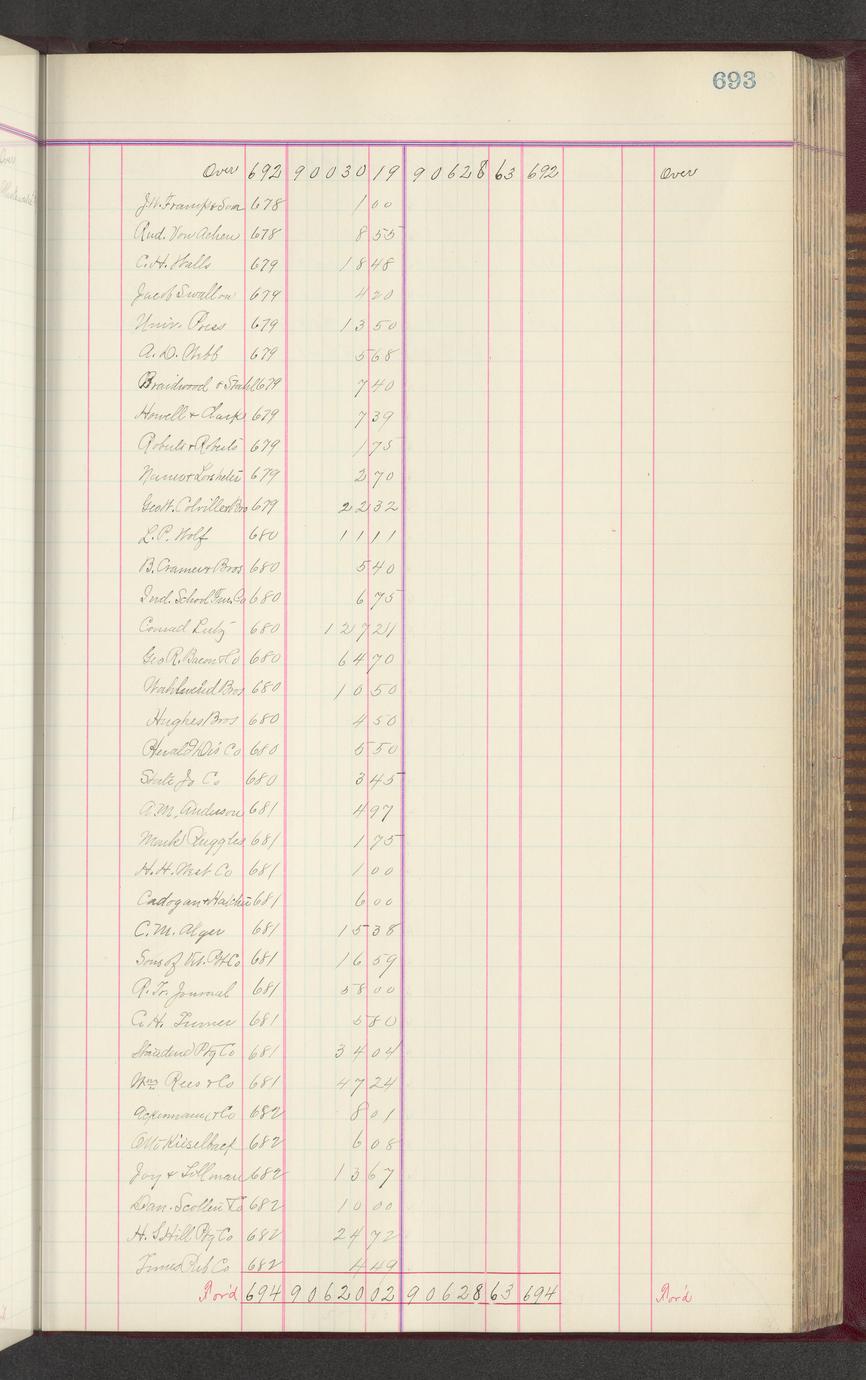 693
Over 692 90030 19 90628 63 692 Over
678 1 00
Rud. Von Achen 678 8 55
C. H. Walls 679 18 48
Jacob Swallow 679 4 20
Univ. Press 679 13 50
A. D. Webb 679 5 68
Braidwood & Stahl 679 7 40
Howell & Clarke 679 7 39
Roberts & Roberts 679 1 75
679 2 70
Geo H. Colville & Bro 679 22 32
L. P. Wolf 680 11 11
B. Cramer & Bros 680 5 40
Ind. School Fur. Co 680 6 75
Conrad Lutz 680 127 21
Geo R. Bacon & Co 680 64 70
Bros 680 10 50
Hughes Bros 680 4 50
Herald Dis Co 680 5 50
State Jo Co 680 3 45
A. M. Anderson 681 4 97
Mark Ruggles 681 1 75
H. H. West Co 681 1 00
Cadogan & 681 6 00
C. M. Alger 681 15 38
Sons of Vet. Co 681 16 59
R. Tr. Journal 681 58 00
C. H. Turner 681 5 80
Standard Ptg Co 681 34 04
Wm Rees & Co 681 47 24
Ackermann & Co 682 8 01
Otto Kieselbach 682 6 08
Joy & 682 13 67
Dan. 682 10 00
H. S. Hill Ptg Co 682 24 72
Times Pub Co 682 4 49
For'd 694 90620 02 90628 63 694 For'd